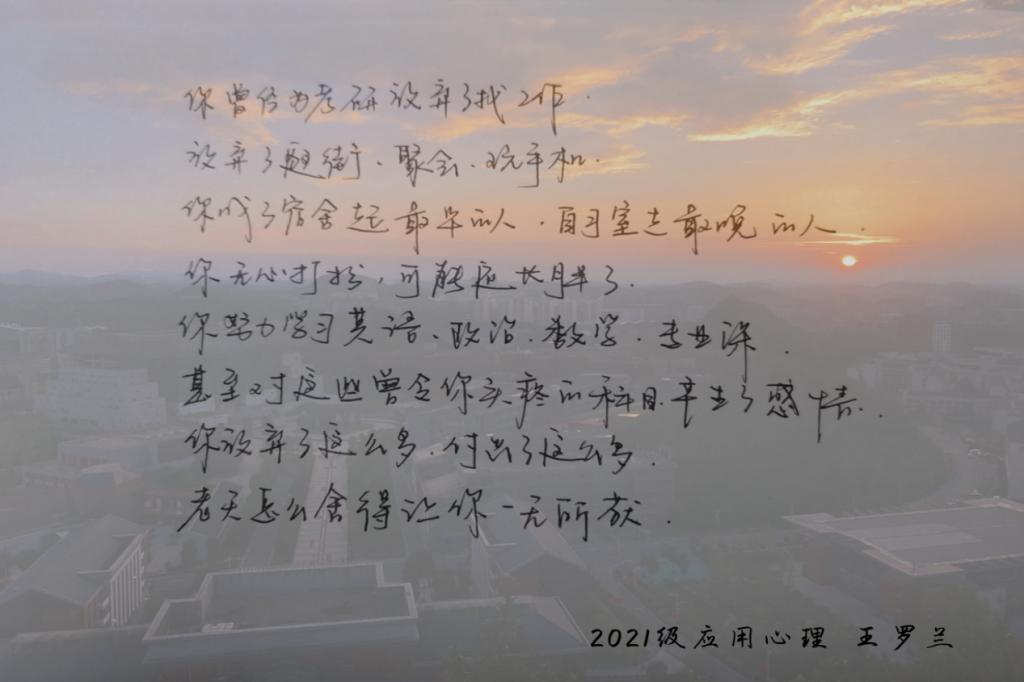 你曾经为考研放弃了找工作.
放弃了逛街、聚会、玩手机.
你成了宿舍起最早的人.自习室走最晚的人.
你无心打扮,可能还长胖了.
你努力学习英语、政治、数学、专业课.
甚至对这些曾令你头疼的科目产生了感情.
你放弃了这么多.付出了这么多.
老天怎么舍得让你一无所获.
2021级应用心理 王罗兰